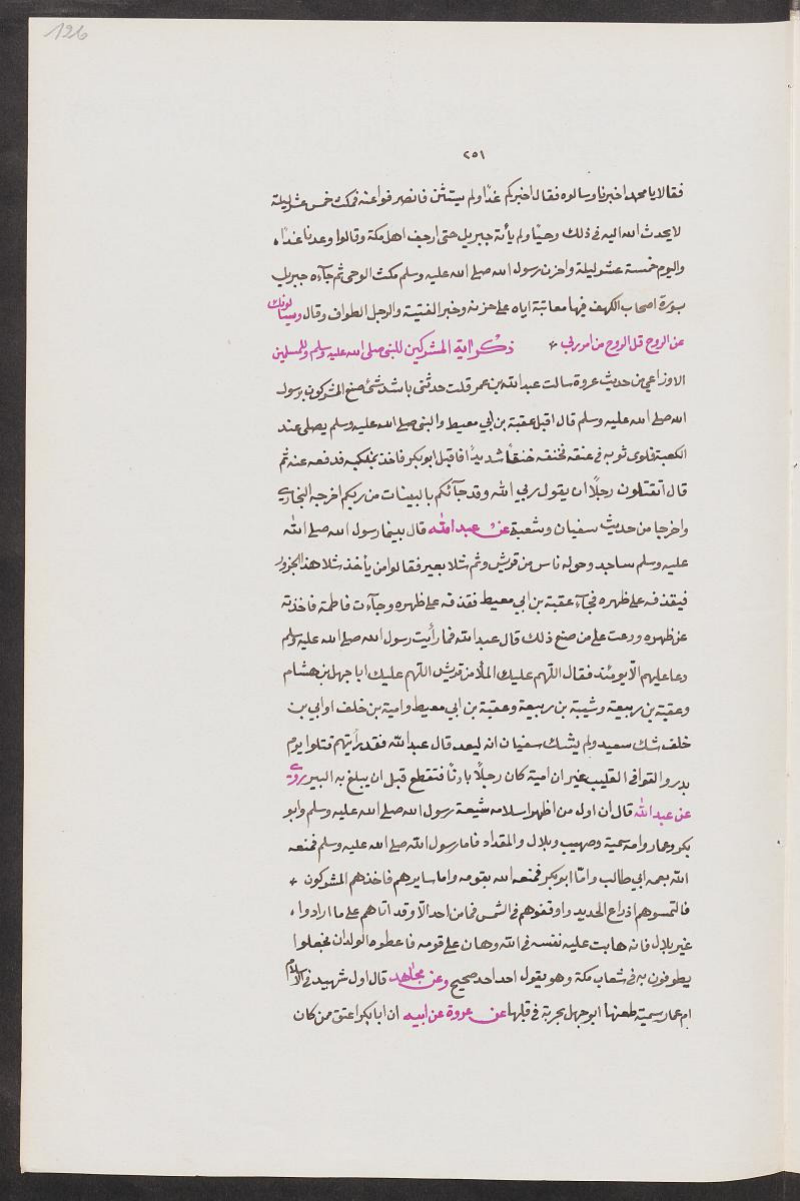 126
٢٥١
فقالا يا محمد اخبرنا وسالوه فقال اخبركم غدًا ولم يستثن فانصرفوا عنه فمكث خمس عشر ليلة
لا يحدث الله اليه في ذلك وحيًا ولم يأته جبريل حتى ارجف اهل مكة وقالوا وعدنا غدًا
واليوم خمسة عشر ليلة واحزن رسول الله صلى الله عليه وسلم مكث الوحى ثم جآءه جبريل
بسورة اصحاب الكهف فيها معاتبة اياه على حزنه وخبر الفتية والرجل الطواف وقال ويسالونك
عن الروح قل الروح من امر ربى * ذكر اذية المشركين للنبى صلى الله عليه وسلم وللمسلمين
الاوزاعي من حديث عروة سالت عبد الله بن عمر قلت حدثنى باشد شئ صنع المشركون برسول
الله صلى الله عليه وسلم قال اقبل عقبة بن ابي معيط والنبى صلى الله عليه وسلم يصلى عند
الكعبة فلوى ثوبه في عنقه فخنقه خنقًا شديدًا فاقبل ابوبكر فاخذ بمنكبه فدفعه عنه ثم
قال اتقتلون رجلًا ان يقول ربي الله وقد جآئكم بالبينات من ربكم اخرجه البخاري
واخرجا من حديث سفيان وشعبة عن عبد الله قال بينما رسول الله صلى الله
عليه وسلم ساجد وحوله ناس من قريش وثم سلا بعير فقالوا من يأخذ سلا هذا الجزور
فيقذفه على ظهره فجآء عقبة بن ابي معيط فقذفه على ظهره وجآءت فاطمة فاخذته
عن ظهره ودعت على من صنع ذلك قال عبد الله فما رأيت رسول الله صلى الله عليه وسلم
دعا عليهم الّا يومئذ فقال اللهم عليك الملأ من قريش اللهم عليك ابا جهل بن هشام
وعقبة بن ربيعة وشيبة بن ربيعة وعقبة بن ابي معيط وامية بن خلف او ابي بن
خلف شك سعيد ولم يشك سفيان انه قال عبد الله فقد رأيتهم قتلوا يوم
بدر والقوا في القليب غير ان امية كان رجلًا بادنًا فتقطع قبل ان يبلغ به البير روي
عن عبد الله قال ان اول من اظهر اسلامه سبعة رسول الله صلى الله عليه وسلم وابو
بكر وعمار وامه سمية وصهيب وبلال والمقداد فاما رسول الله صلى الله عليه وسلم فمنعه
الله بعمه ابي طالب وامّا ابو بكر فمنعه الله بقومه واما سايرهم فاخذهم المشركون *
فالبسوهم ادراع الحديد واوقفوهم في الشمس فما من احد الّا وقد اتاهم على ما ارادوا
غير بلال فانه هابت عليه نفسه في الله وهان على قومه فاعطوه الولدان فجعلوا
يطوفون به في شعاب مكة وهو يقول احد احد صحيح وعن مجاهد قال اول شهيد في الاسلام
ام عمار سمية طعنها ابو جهل بحربة في قبلها عن عروة عن ابيه ان ابا بكر اعتق ممن كان